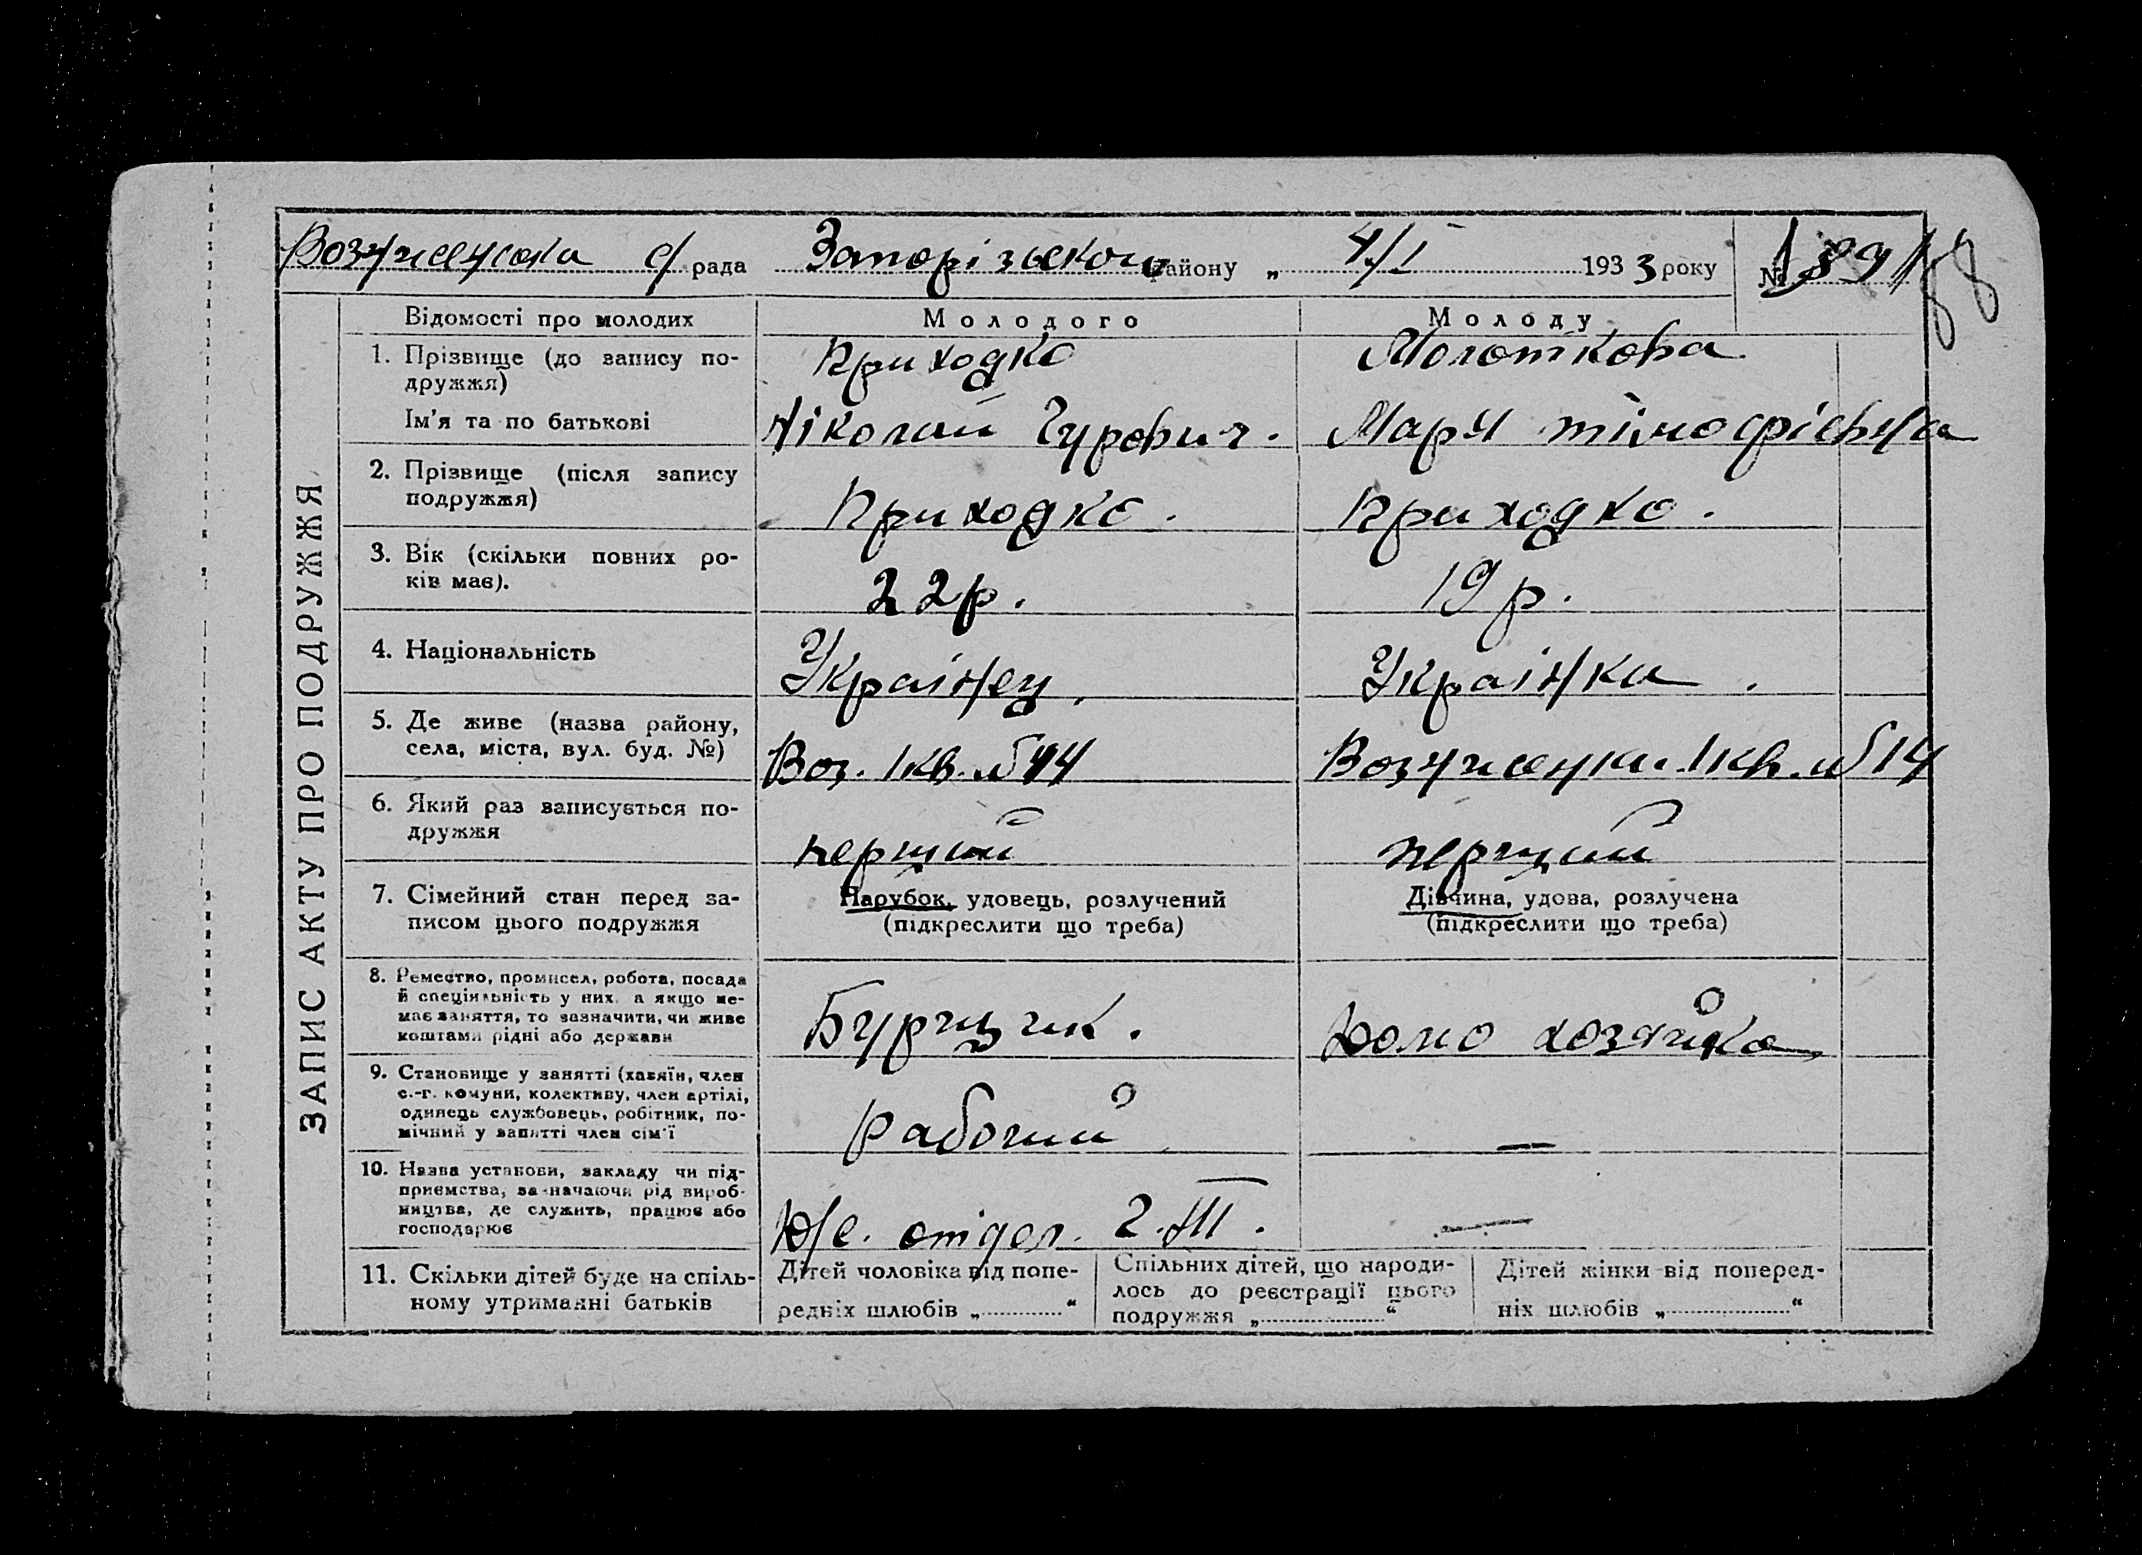 Вознесенська с/рада Запорізького району „ 4/I 1933 року № 89
88
ЗАПИС АКТУ ПРО ПОДРУЖЖЯ
Відомості про молодих Молодого Молоду
1. Прізвище (до запису по-
дружжя) Приходко Молоткова
Ім'я та по батькові Ніколай Гурович. Марія Тімофієвна
2. Прізвище (після запису
подружжя) Приходко. Приходко.
3. Вік (скільки повних ро-
ків має). 22 р. 19 р.
4. Національність Українец. Українка.
5. Де живе (назва району,
села, міста, вул. буд. №) Воз. 1 кв. № 14 Вознесенка 1 кв. № 14
6. Який раз записується по-
дружжя перший перший
7. Сімейний стан перед за-
писом цього подружжя
Парубок, удовець, розлучений
(підкреслити що треба)
Дівчина, удова, розлучена
(підкреслити що треба)
8. Ремество, промисел, робота, посада
й спеціяльність у них, а якщо не-
має заняття, то зазначити, чи живе
коштами рідні або держави
Бурщик. Домохозяйка
9. Становище у занятті (хазяїн, член
с.-г. комуни, колективу, член артілі,
одинець службовець, робітник, по-
мічний у занятті член сім'ї
Рабочий —
10. Назва установи, закладу чи під-
приємства, зазначаючи рід вироб-
ництва, де служить, працює або
господарює
отідел. —
11. Скільки дітей буде на спіль-
ному утриманні батьків
Дітей чоловіка від попе-
редніх шлюбів „ “
Спільних дітей, що народи-
лось до реєстрації цього
подружжя „ “
Дітей жінки від поперед-
ніх шлюбів „ “